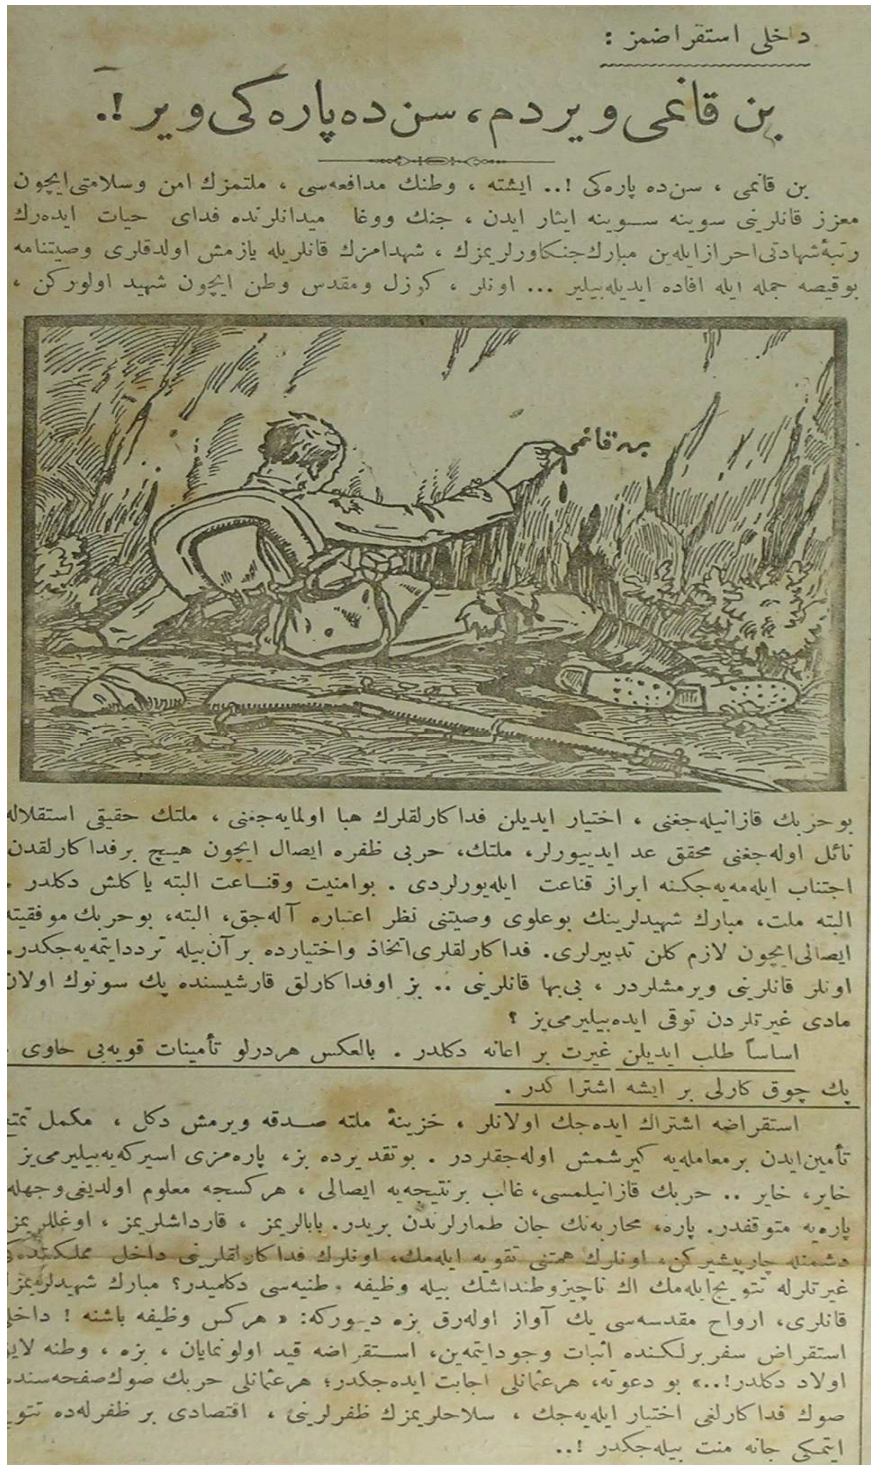 داخلی استقراضمز :
بن قانمی ویردم، سن ده پاره کی ویر !.
بن قانمی ، سن ده پاره کی !.. ایشته ، وطنك مدافعه سی ، ملتمزك امن وسلامتی ایچون
معزز قانلرینی سوینه سوینه ایثار ایدن ، جنك ووغا میدانلرنده فدای حیات ایده رك
رتبهٔ شهادتی احراز ایله ین مبارك جنكاورلریمزك ، شهدامزك قانلریله یازمش اولدقلری وصیتنامه
بوقیصه جمله ایله افاده ایدیله بیلیر ... اونلر ، كوزل ومقدس وطن ایچون شهید اولورکن ،
بن قانمی
بوحربك قازانیله جغنی ، اختیار ایدیلن فداكارلقلرك هبا اولمایه جغنی ، ملتك حقیقی استقلاله
نائل اوله جغنی محقق عد ایدییورلر، ملتك، حربی ظفره ایصال ایچون هیچ برفداكارلقدن
اجتناب ایله مه یه جكنه ابراز قناعت ایله یورلردی . بوامنیت وقناعت البته یاكلش دكلدر .
البته ملت، مبارك شهیدلرینك بوعلوی وصیتنی نظر اعتباره آله جق، البته، بوحربك موفقیته
ایصالی ایچون لازم كلن تدبیرلری. فداكارلقلری اتخاذ واختیارده بر آن بیله ترددایتمه یه جكدر.
اونلر قانلرینی ویرمشلردر ، بی بها قانلرینی .. بز اوفداكارلق قارشیسنده پك سونوك اولان
مادی غیرتلردن توقی ایده بیلیرمی یز ؟
اساساً طلب ایدیلن غیرت بر اعانه دكلدر . بالعكس هردرلو تأمینات قویه یی حاوی
پك چوق كارلی بر ایشه اشترا كدر .
استقراضه اشتراك ایده جك اولانلر ، خزینهٔ ملته صدقه ویرمش دكل ، مكمل تمتع
تأمین ایدن برمعامله یه كیرشمش اوله جقلردر . بوتقدیرده بز، پاره مزی اسیركه یه بیلیرمی یز
خایر، خایر .. حربك قازانیلمسی، غالب برنتیجه یه ایصالی ، هركسجه معلوم اولدیغی وجهله
پاره یه متوقفدر. پاره، محاربه نك جان طمارلرندن بریدر. بابالریمز ، قارداشلریمز ، اوغللریمز
دشمنله چارپیشیركن، اونلرك همتنی تقویه ایله مك، اونلرك فداكارلقلرنی داخل مملكتده كی
غیرتلرله تتویج ایله مك اك ناچیز وطنداشك بیله وظیفه وطنیه سی دكلمیدر؟ مبارك شهیدلریمزك
قانلری، ارواح مقدسه سی یك آواز اوله رق بزه دیوركه: « هركس وظیفه باشنه ! داخلی
استقراض سفربرلكنده اثبات وجودایتمه ین، استقراضه قید اولونمایان ، بزه ، وطنه لایق
اولاد دكلدر!..» بو دعوته، هرعثمانلی اجابت ایده جكدر؛ هرعثمانلی حربك صوك صفحه سنده
صوك فداكارلغی اختیار ایله یه جك ، سلاحلریمزك ظفرلرینی ، اقتصادی بر ظفرله ده تتویج
ایتمكی جانه منت بیله جكدر !..